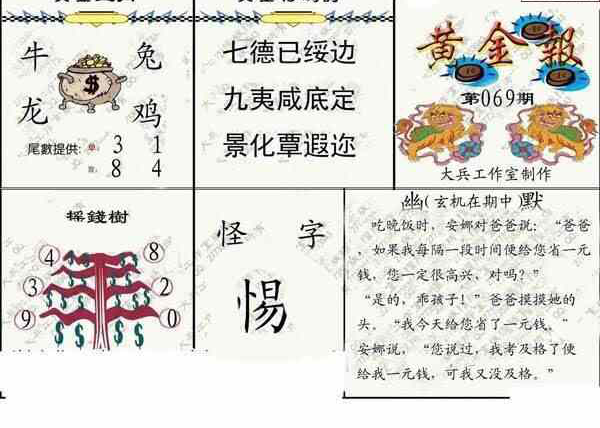 牛
兔
$
龙
鸡
尾數提供:
3 1
8 4
七德已绥边
九夷咸底定
景化覃遐迩
黄金報
第069期
大兵工作室制作
摇錢樹
4 8
3 2
9 0
怪 字
惕
幽(玄机在期中)默
吃晚饭时，安娜对爸爸说：“爸爸
，如果我每隔一段时间便给您省一元
钱，您一定很高兴，对吗？”
“是的，乖孩子！”爸爸摸摸她的
头。“我今天给您省了一元钱。”
安娜说，“您说过，我考及格了便
给我一元钱，可我又没及格。”